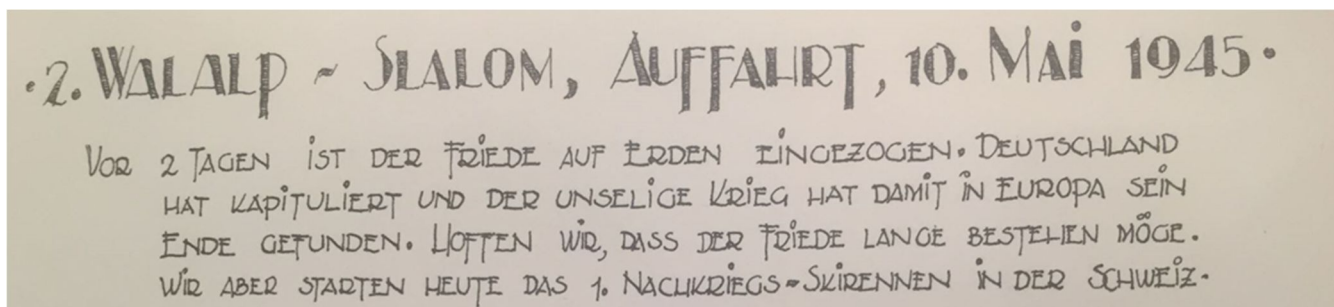 ·2. WALALP ~ SLALOM, AUFFAHRT, 10. MAI 1945·
VOR 2 TAGEN IST DER FRIEDE AUF ERDEN EINGEZOGEN. DEUTSCHLAND
HAT KAPITULIERT UND DER UNSELIGE KRIEG HAT DAMIT IN EUROPA SEIN
ENDE GEFUNDEN. HOFFEN WIR, DASS DER FRIEDE LANGE BESTEHEN MÖGE.
WIR ABER STARTEN HEUTE DAS 1. NACHKRIEGS-SKIRENNEN IN DER SCHWEIZ.